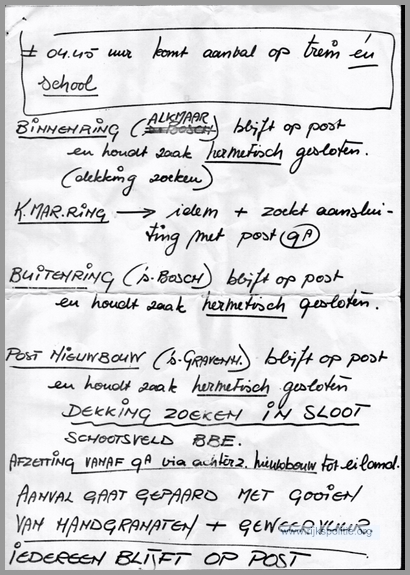 ± 04.45 uur komt aanval op trein én
school
BINNENRING (ALKMAAR) blijft op post
en houdt zaak hermetisch gesloten.
(dekking zoeken)
K.MAR.RING → idem + zoekt aanslui-
ting met post 9A
BUITENRING ('s-BOSCH) blijft op post
en houdt zaak hermetisch gesloten.
POST NIEUWBOUW ('s-GRAVENH.) blijft op post
en houdt zaak hermetisch gesloten
DEKKING ZOEKEN IN SLOOT
SCHOOTSVELD BBE.
AFZETTING VANAF 9A via achterz. nieuwbouw tot eiland.
AANVAL GAAT GEPAARD MET GOOIEN
VAN HANDGRANATEN + GEWEERVUUR
www.rijkspolitie.org
IEDEREEN BLIJFT OP POST